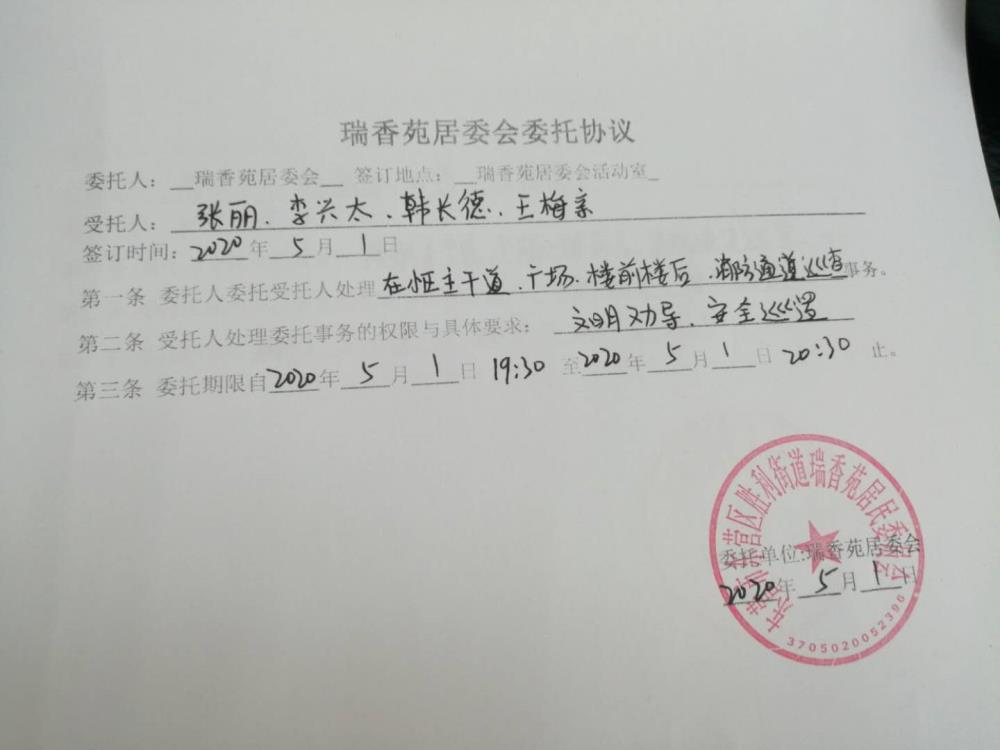 瑞香苑居委会委托协议
委托人：__瑞香苑居委会__ 签订地点：__瑞香苑居委会活动室_
受托人：张丽、李兴太、韩长德、王梅亲
签订时间：2020年 5 月 1 日
第一条 委托人委托受托人处理在小区主干道、广场、楼前楼后、消防通道巡查事务。
第二条 受托人处理委托事务的权限与具体要求：文明劝导、安全巡逻
第三条 委托期限自2020年 5 月 1 日 19:30 至2020年 5 月 1 日 20:30 止。
东营市东营区胜利街道瑞香苑居民委员会
委托单位:瑞香苑居委会
2020年 5 月 1 日
3705020052396